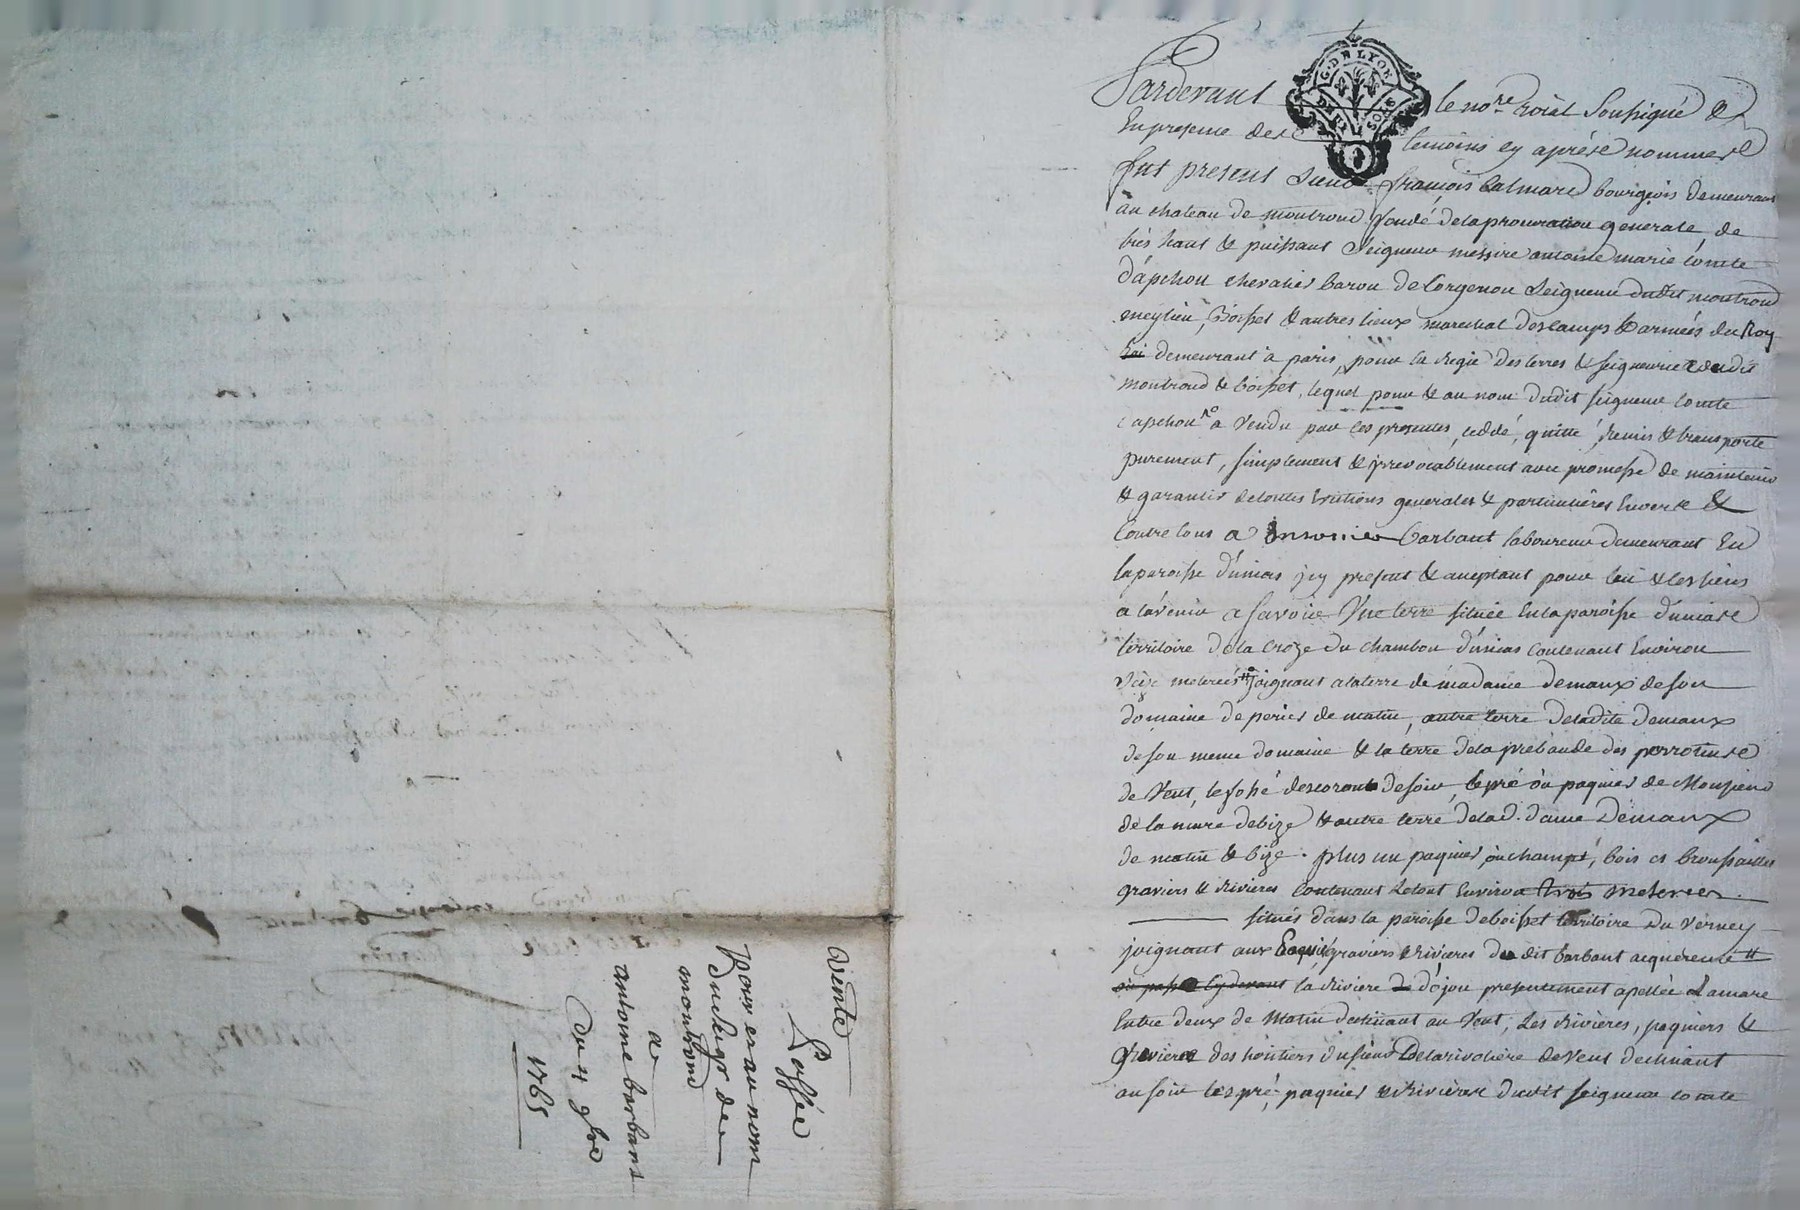 G. DE LYON
SOLS
Pardevant le nore roial soussigné &
En presence des temoins cy aprèse nommese
fut present sieur françois Calmard bourgeois demeurant
au chateau de montrond fondé dela procuration generale de
très haut & puissant Seigneur messire antoine marie Comte
d'apchon chevalier baron de Corgenon Seigneur dudit montrond
meylieu, Boisset & autres lieux marechal des camps & armées du Roy
demeurant à paris, pour la regie des terres & seigneurie dudit
montrond & boisset, lequel pour & au nom dudit seigneur Comte
d'apchon a vendu par ces presentes, ceddé, quitté, remis & transporté
purement, simplement & irrevocablement avec promesse de maintenir
& garantir de toutes evictions generales & particulières Enverse &
Contre tous a barbant laboureur demeurant En
la paroisse d'unias icy present & acceptant pour lui & les siens
a l'avenir a savoir Une terre située En la paroisse d'uniase
territoire dela Croze du chambon d'unias contenant Environ
meterées joignant a la terre de madame demaux de son
domaine de perier de matin, autre terre deladite demaux
de son meme domaine & la terre dela prebande des perrotinse
de Vent, le fossé descorant de soir, le pré ou paquier de Monsieur
de la mure de bize & autre terre delad. dame Demaux
de matin & bize. plus un paquier, ou champt, bois et broussailles
graviers & rivieres contenant le tout Environ trois meterées.
situés dans la paroisse de boisset territoire du Verney
joignant aux graviers & rivieres du dit barbant acquereur
la riviere d'ojon presentement apellée Lamare
Entre deux de matin declinant au Vent, les rivieres, paquiers &
gravieres des heritiers du sieur Delarivoliere de Vent declinant
au soir les pré, paquier & rivierese dudit seigneur Comte
Vente
Passée
pour et au nom
Du seigr de
montrond
a
antoine barbant
Du 4 9bre
1765